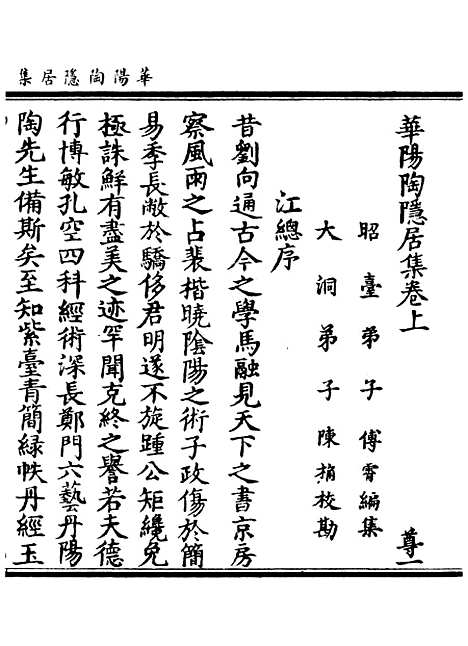 華陽陶隱居集
華陽陶隱居集卷上　尊一
昭臺弟子傅霄編集
大洞弟子陳桷校勘
江總序
昔劉向通古今之學馬融見天下之書京房
察風雨之占裴楷曉陰陽之術子政傷於簡
易季長敝於驕侈君明遂不旋踵公矩纔免
極誅鮮有盡美之迹罕聞克終之譽若夫德
行博敏孔空四科經術深長鄭門六藝丹陽
陶先生備斯矣至知紫臺青簡緑帙丹經玉